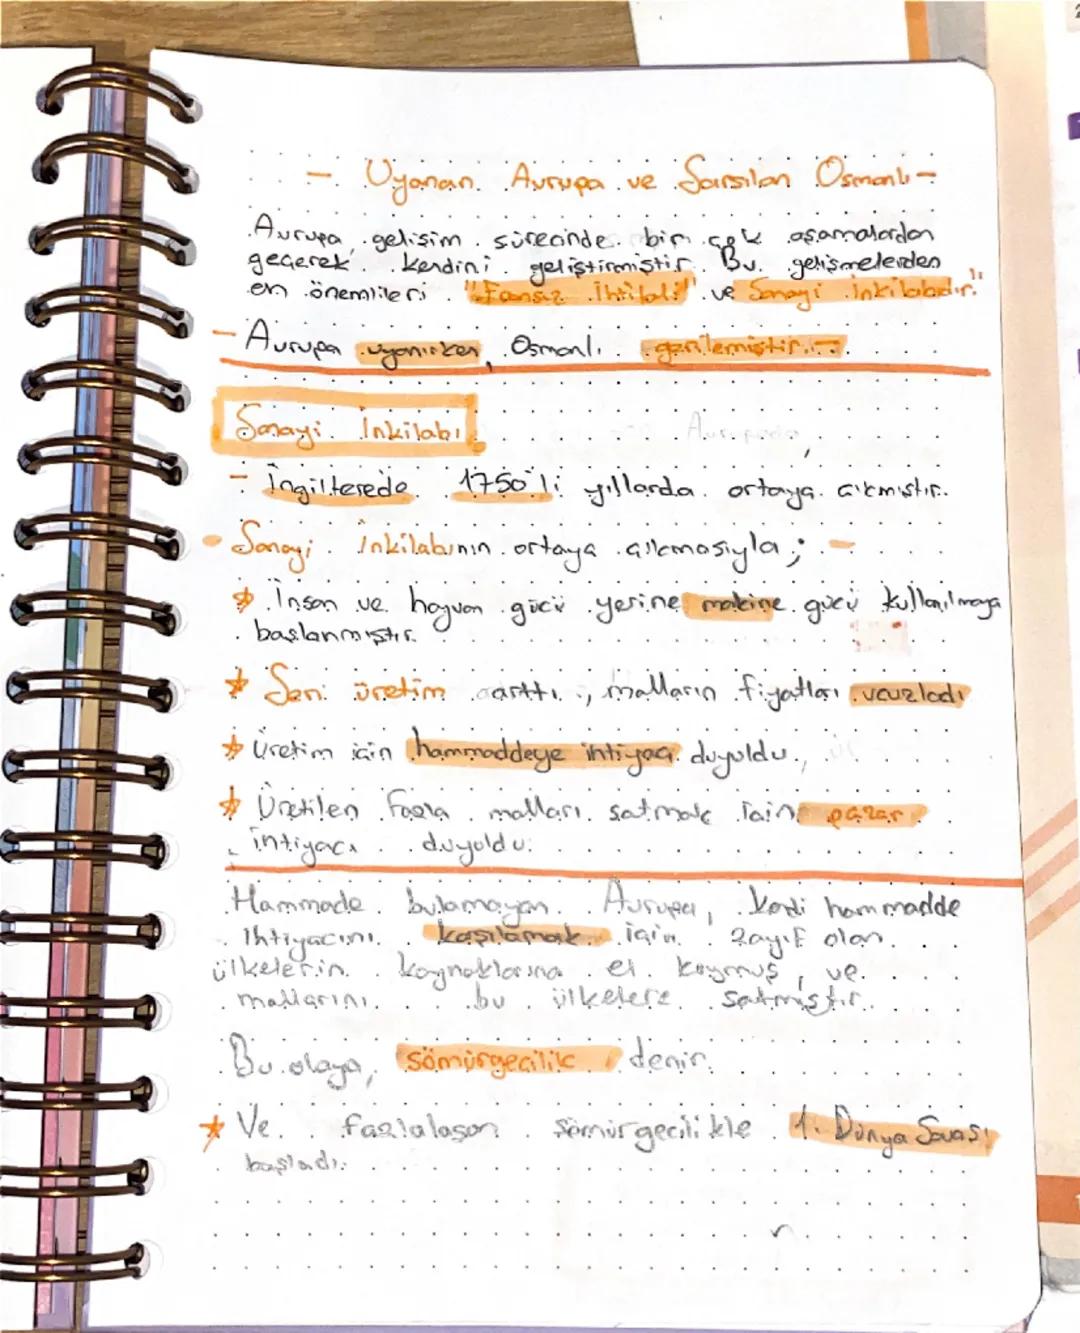 - Uyanan Avrupa ve Sarsılan Osmanlı -
Avrupa, gelişim sürecinde bir çok aşamalardan
geçerek kendini geliştirmiştir. Bu gelişmelerden
en önemlileri "Fransız İhtilali" ve Sanayi İnkilabıdır."
- Avrupa uyanırken, Osmanlı gerilemiştir. -
Sanayi İnkilabı
- İngilterede 1750'li yıllarda ortaya çıkmıştır.
• Sanayi İnkilabının ortaya çıkmasıyla; -
☆ İnsan ve hayvan gücü yerine makine gücü kullanılmaya
başlanmıştır.
☆ Seri üretim arttı, malların fiyatları ucuzladı
☆ Üretim için hammaddeye ihtiyaç duyuldu.
☆ Üretilen fazla malları satmak için pazar
intiyacı duyuldu.
Hammade bulamayan Avrupa, kendi hammadde
ihtiyacını kaşılamak için zayıf olan
ülkelerin kaynaklarına el koymuş, ve
mallarını bu ülkelere satmıştır.
Bu olaya, sömürgecilik denir.
☆ Ve fazlalaşan sömürgecilikle 1. Dünya Savaşı
başladı.